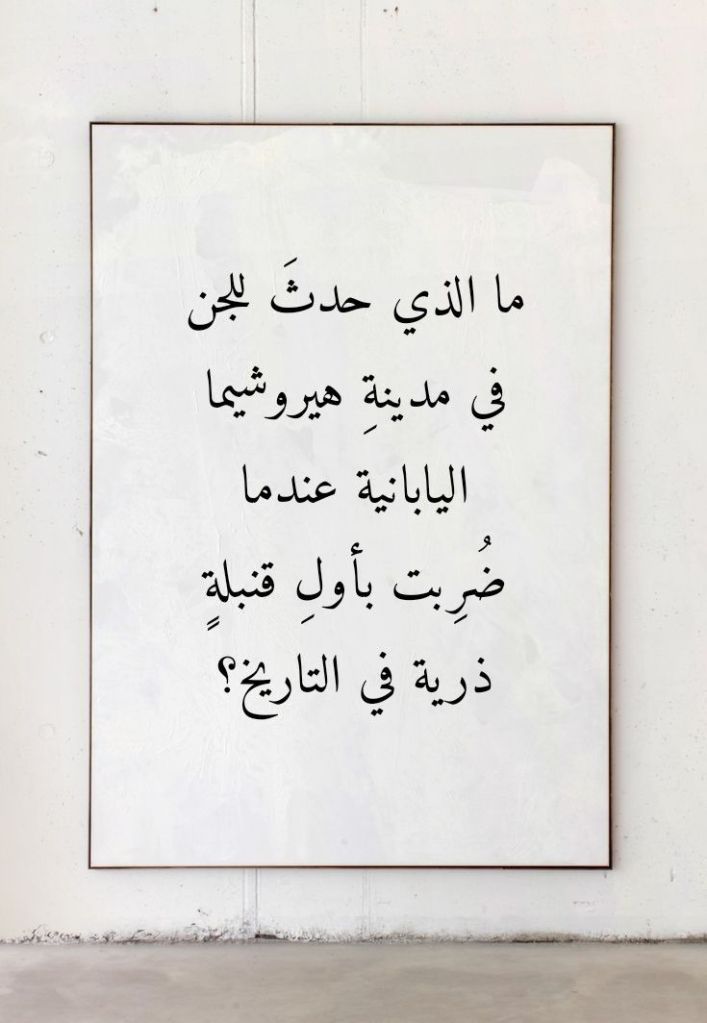 ما الذي حدثَ للجن
في مدينةِ هيروشيما
اليابانية عندما
ضُرِبت بأولِ قنبلةٍ
ذرية في التاريخ؟